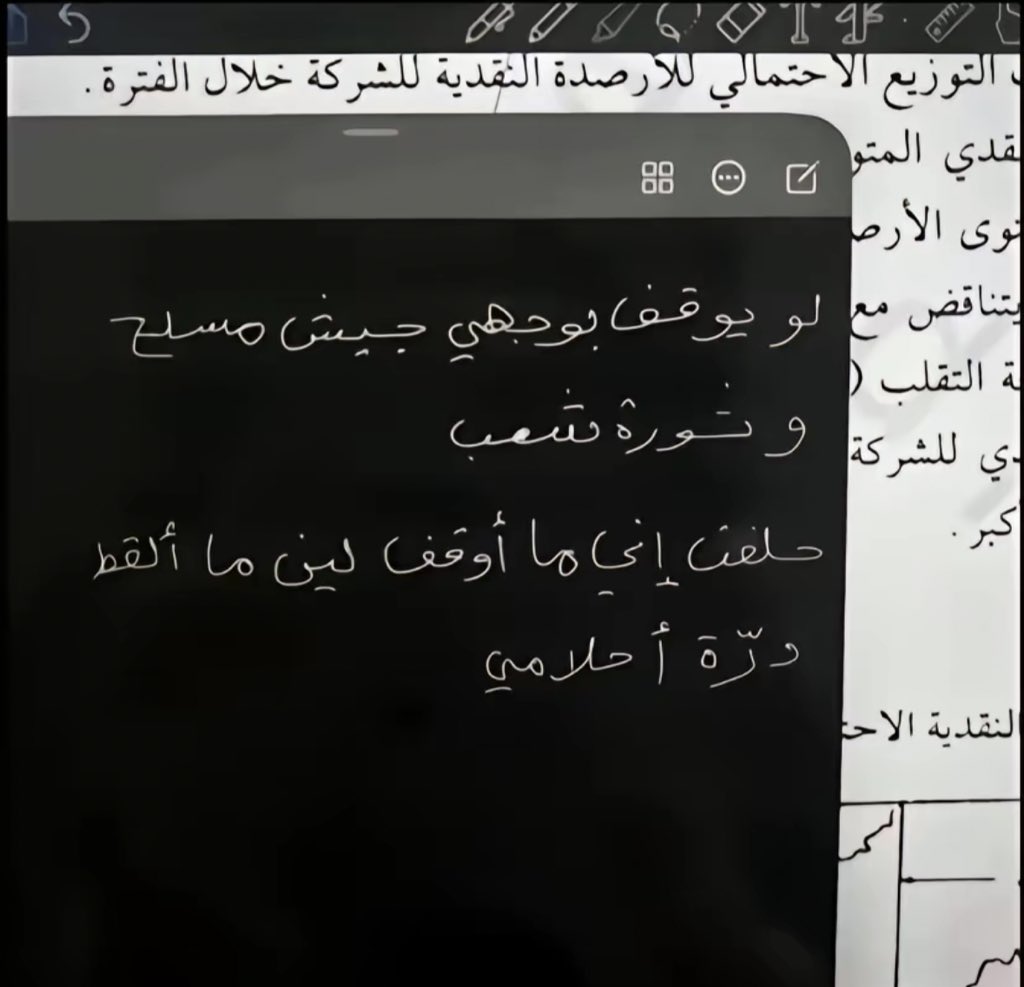 التوزيع الاحتمالي للأرصدة النقدية للشركة خلال الفترة .
نقدي المتو
توى الأرص
يتناقض مع
ة التقلب (
دي للشركة
كبر .
لنقدية الاحت
لو يوقف بوجهي جيش مسلح
و ثورة شعب
حلفت إني ما أوقف لين ما ألقط
درّة أحلامي